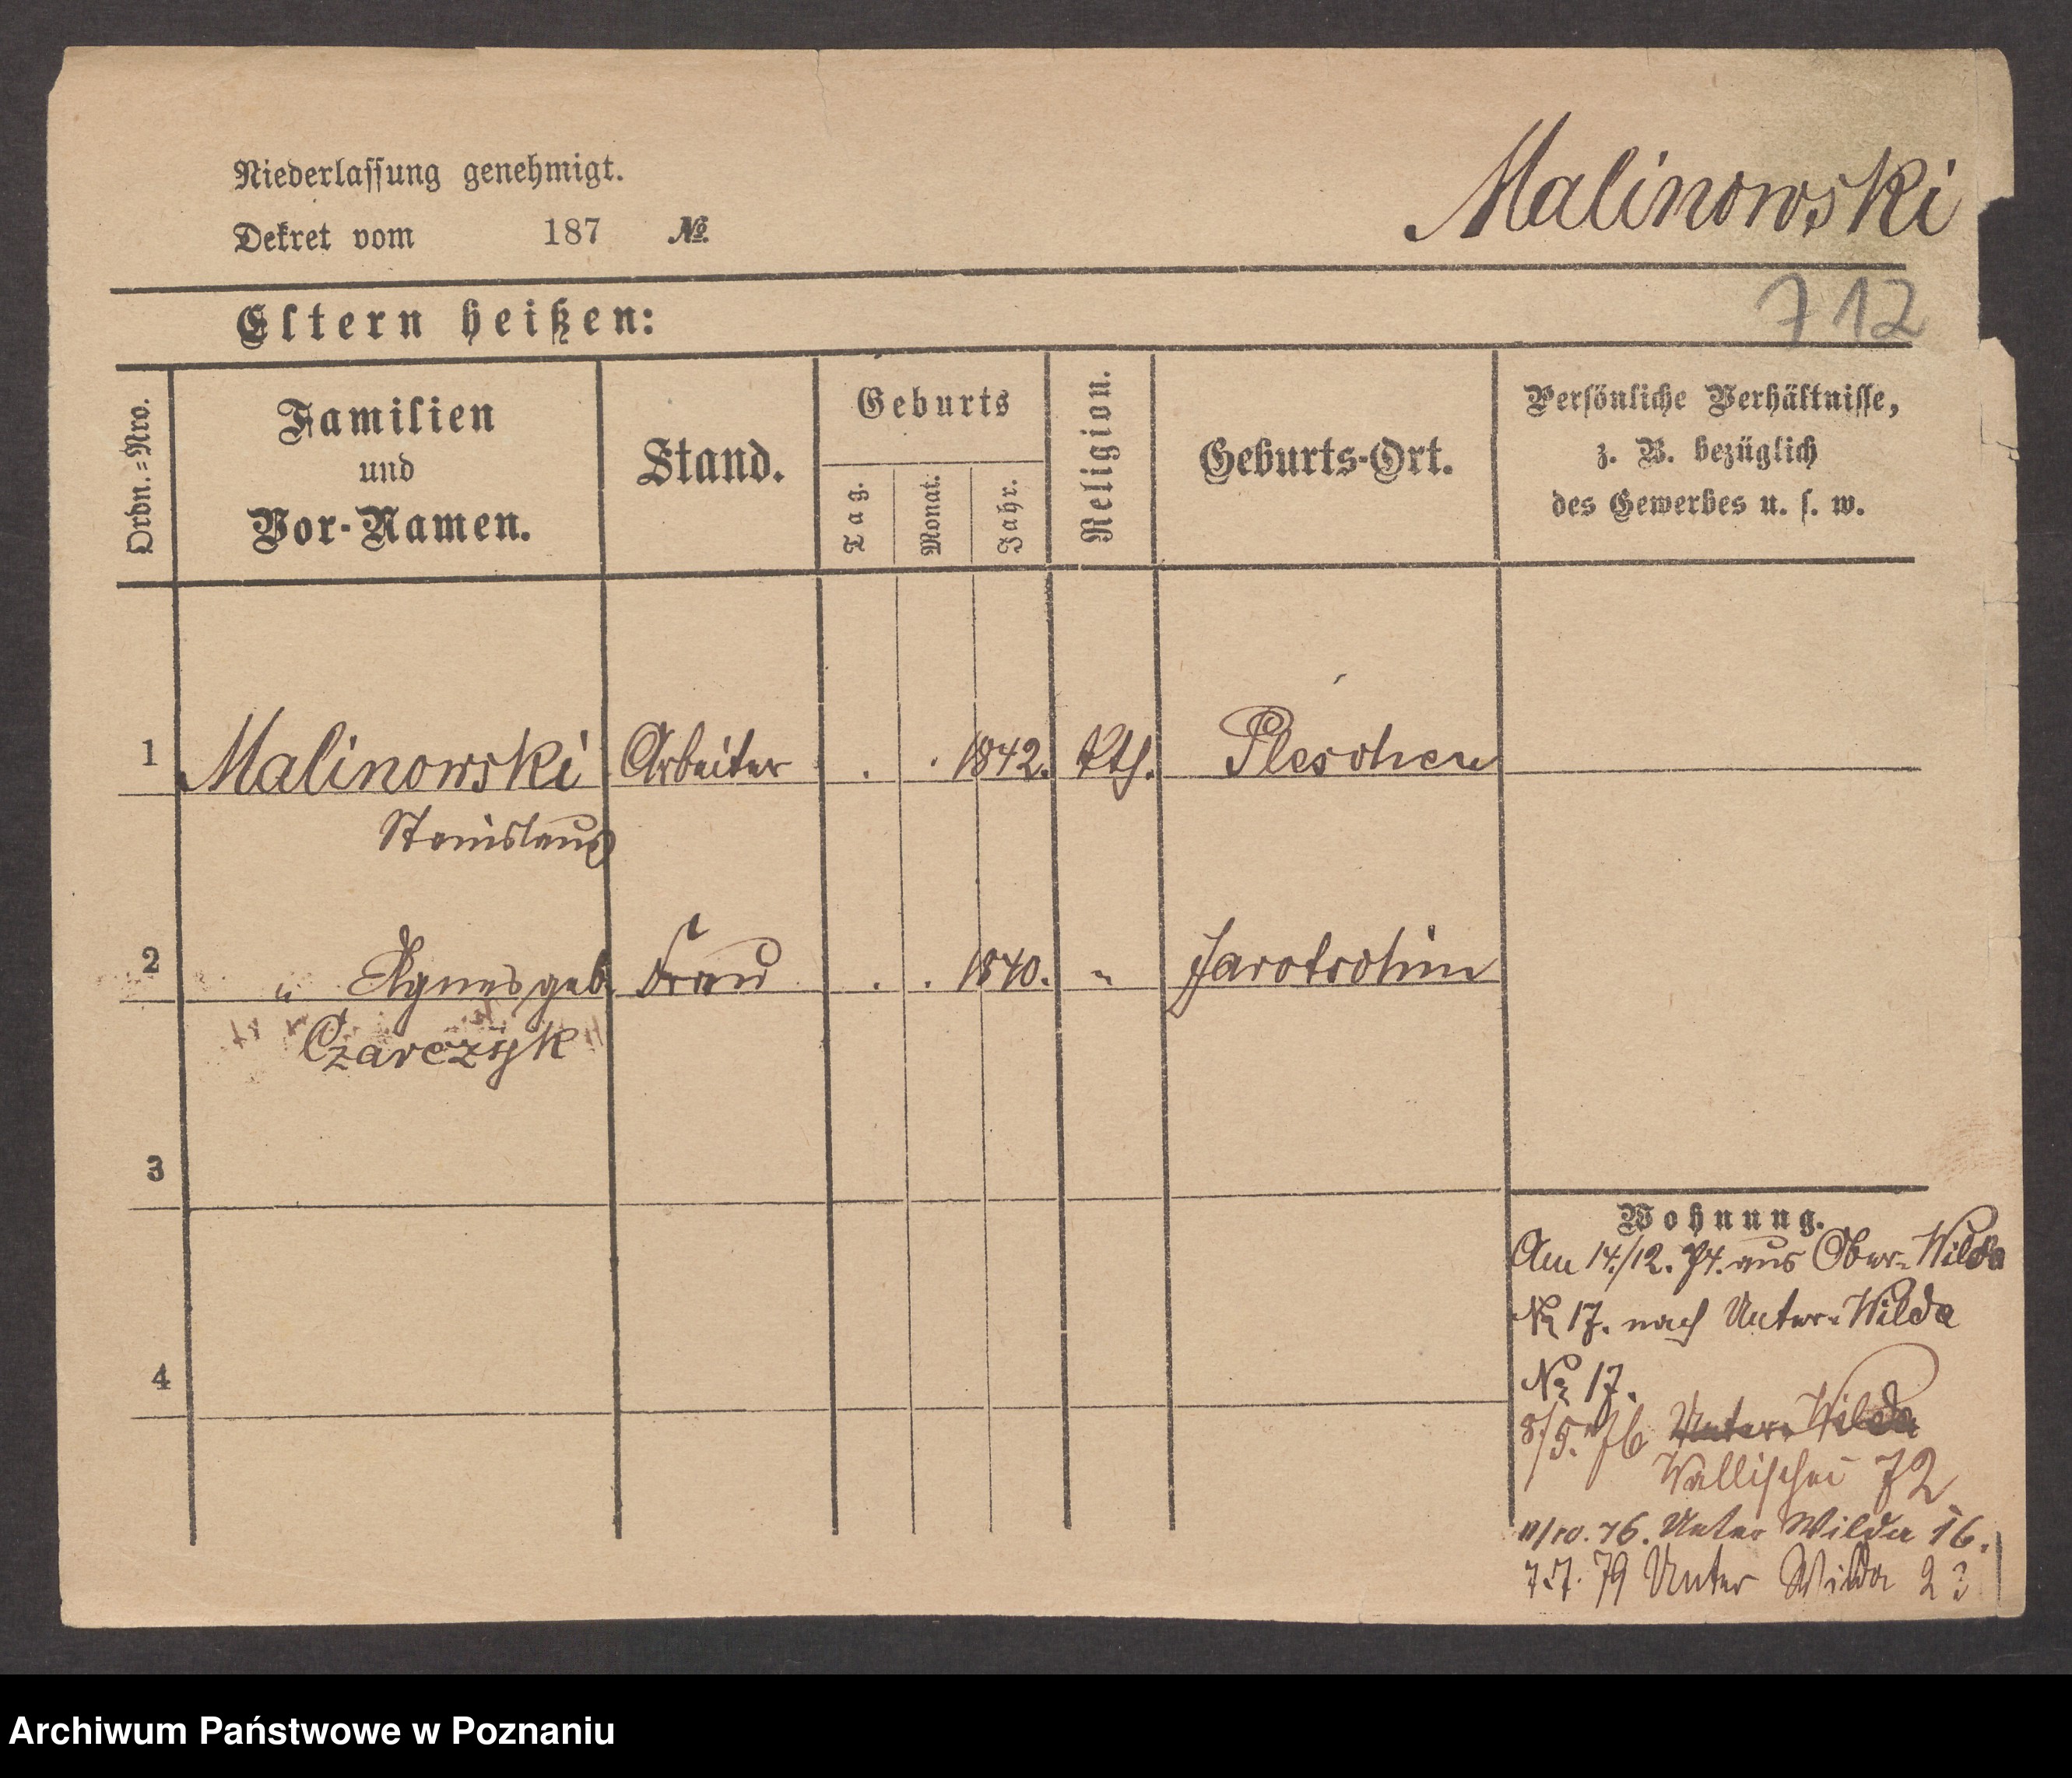 Niederlassung genehmigt.
Malinowski
Dekret vom 187 №
712
Eltern heißen:
Ordn.=Nro.
Familien
und
Vor-Namen.
Stand.
Geburts
Tag.
Monat.
Jahr.
Religion.
Geburts-Ort.
Persönliche Verhältnisse,
z. B. bezüglich
des Gewerbes u. s. w.
1 Malinowski Arbeiter . . 1842. kth. Pleschen
Stanislaus
2 " Agnes geb. Frau . . 1840. " Jarotschin
Czarczyk
3
4
Wohnung.
Am 14./12. 74. aus Ober-Wilda
№ 17. nach Unter-Wilda
№ 17.
8/5. 76 Unter-Wilda
Wallischei 72
11/10. 76. Unter Wilda 16.
7.7. 79 Unter Wilda 23
Archiwum Państwowe w Poznaniu